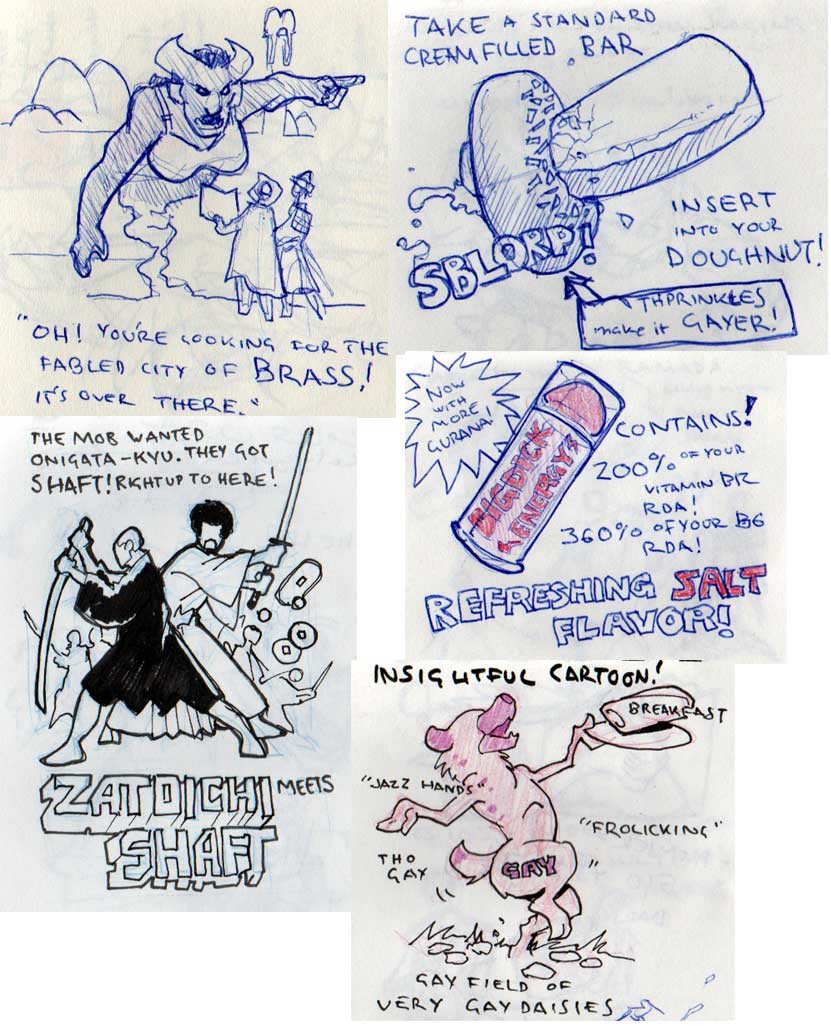 "OH! YOU'RE LOOKING FOR THE
FABLED CITY OF BRASS!
IT'S OVER THERE."
TAKE A STANDARD
CREAM FILLED BAR
INSERT
INTO YOUR
DOUGHNUT!
SBLORP!
THPRINKLES
make it GAYER!
THE MOB WANTED
ONIGATA-KYU. THEY GOT
SHAFT! RIGHT UP TO HERE!
ZATOICHI MEETS
SHAFT
NOW
WITH
MORE
GURANA!
BIGDICK
ENERGY
CONTAINS!
200% OF YOUR
VITAMIN B12
RDA!
360% OF YOUR B6
RDA!
REFRESHING SALT
FLAVOR!
INSIGHTFUL CARTOON!
BREAKFAST
"JAZZ HANDS"
"FROLICKING"
THO
GAY
GAY
GAY FIELD OF
VERY GAY DAISIES